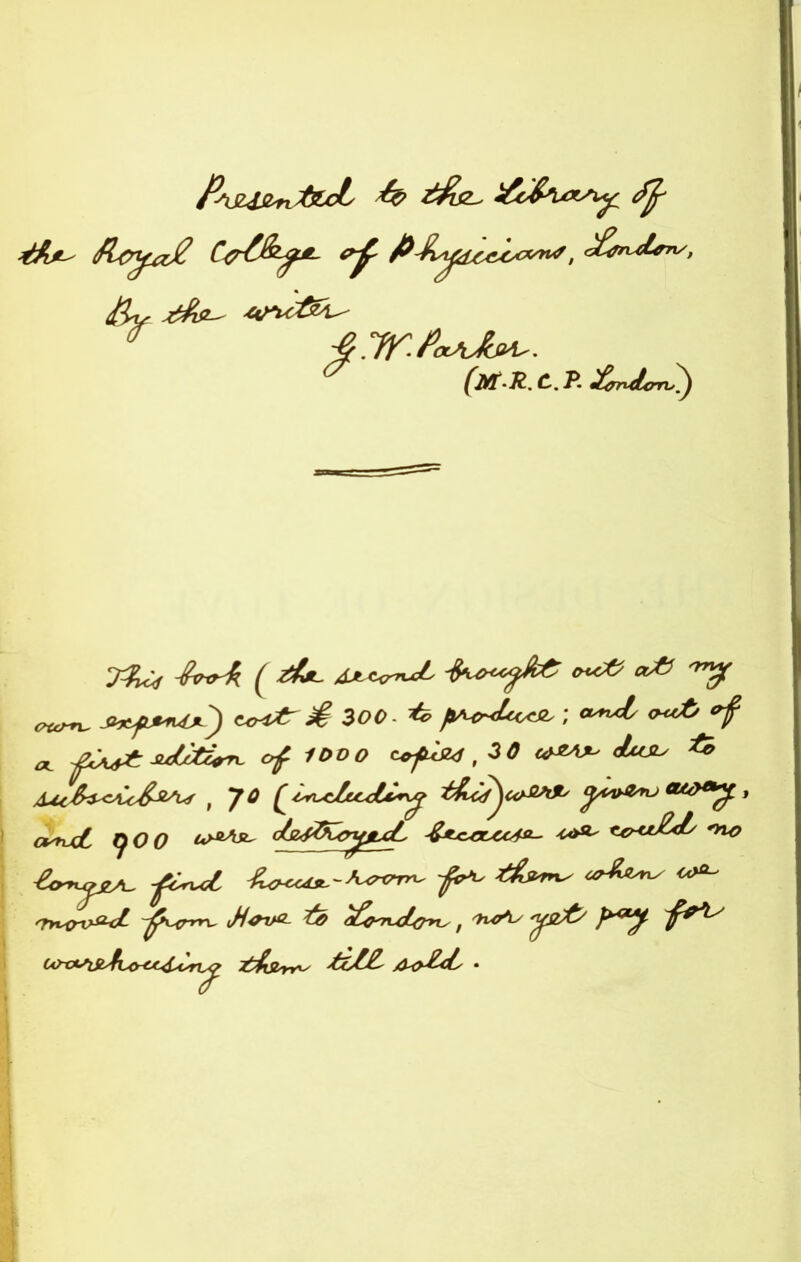 Presented to the Library of
the Royal College of Physicians, London,
By the writer
J. W. Parker.
(M.R.C.P. London.)
This book (the second brought out at my
own expense) cost £ 300. to produce; and out of
a first edition of 1000 copies, 30 were due to
Subscribers, 70 (including this) were given away,
and 900 were destroyed because we could no
longer find house-room for them when we
moved from Hove to London, nor yet pay for
warehousing them till sold.